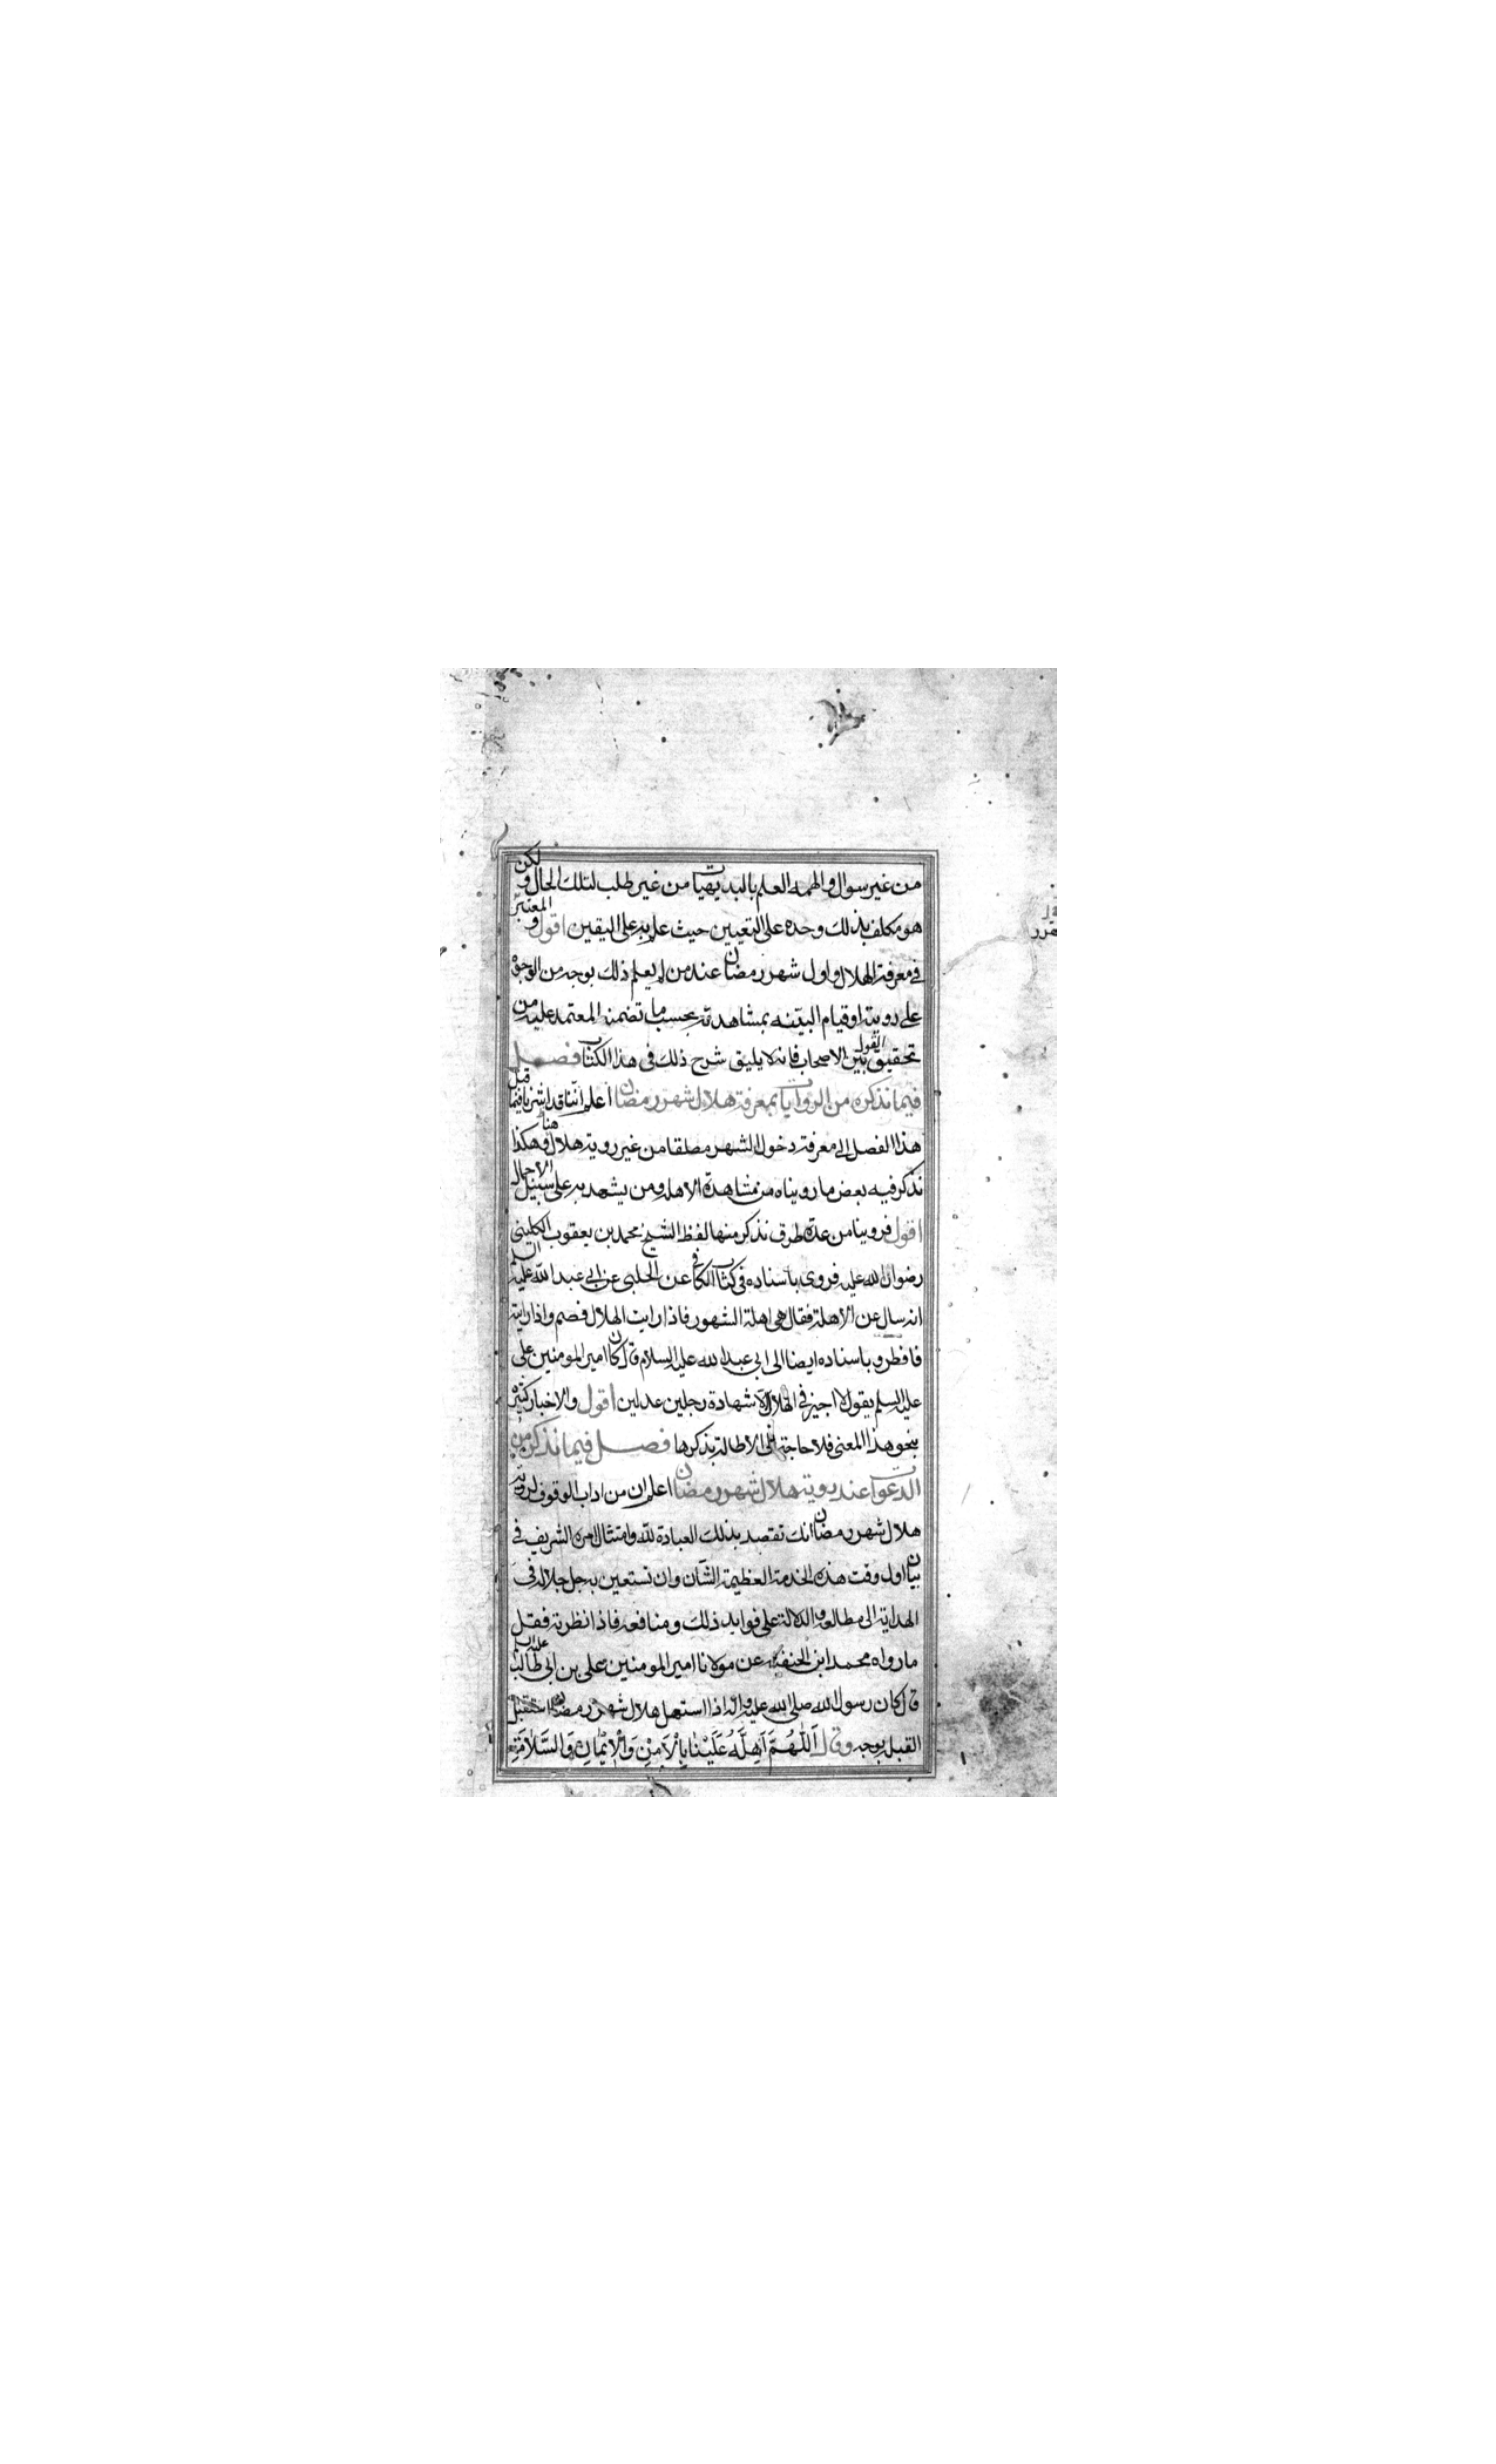 من غير سوال والهمه العلم بالبديهيات من غير طلب لتلك الحال ولكن
هو مكلف بذلك وحده على التعيين حيث علم به على اليقين اقول والمعتبر
في معرفة الهلال واول شهر رمضان عند من لم يعلم ذلك بوجه من الوجوه
على رويته او قيام البينه بمشاهدته بحسب ما تضمنه المعتمد عليه من
تحقيق القول بين الاصحاب فانه لا يليق شرح ذلك فى هذا الكتاب فصل
فيما نذكره من الروايات بمعرفة هلال شهر رمضان اعلم اننا قد اشرنا فيما قبل
هذا الفصل الى معرفة دخول الشهر مطلقا من غير روية هلال وهكذا هنا
نذكر فيه بعض ما رويناه من مشاهدة الاهلة ومن يشهد به على سبيل الاجمال
اقول فروينا من عدة طرق نذكر منها لفظ الشيخ محمد بن يعقوب الكلينى
رضوان الله عليه فروى باسناده فى كتاب الكافى عن الحلبى عن ابى عبد الله عليه السلم
انه سال عن الاهلة فقال هى اهلة الشهور فاذا رايت الهلال فصم واذا رايته
فافطر وباسناده ايضا الى ابى عبد الله عليه السلام قال كان امير المومنين على
عليه السلم يقول لا اجيز فى الهلال الا شهادة رجلين عدلين اقول والاخبار كثيرة
بنحو هذا المعنى فلا حاجة الى الاطالة بذكرها فصل فيما نذكره من
الدعوات عند روية هلال شهر رمضان اعلم ان من اداب الوقوف لروية
هلال شهر رمضان انك تقصد بذلك العبادة لله وامتثال امره الشريف فى
بيان اول وقت هذه الخدمة العظيمة الشأن وان تستعين به جل جلاله فى
الهداية الى مطالعه والدلالة على فوايد ذلك ومنافعه فاذا نظرته فقل
ما رواه محمد ابن الحنفية عن مولانا امير المومنين على بن ابى طالب عليه السلم
قال كان رسول الله صلى الله عليه واله اذا استهل هلال شهر رمضان استقبل
القبلة بوجهه وقال اَللّٰهُمَّ اَهِلَّهُ عَلَيْنٰا بِالْاَمْنِ وَالْاِيْمٰانِ وَالسَّلَامَةِ